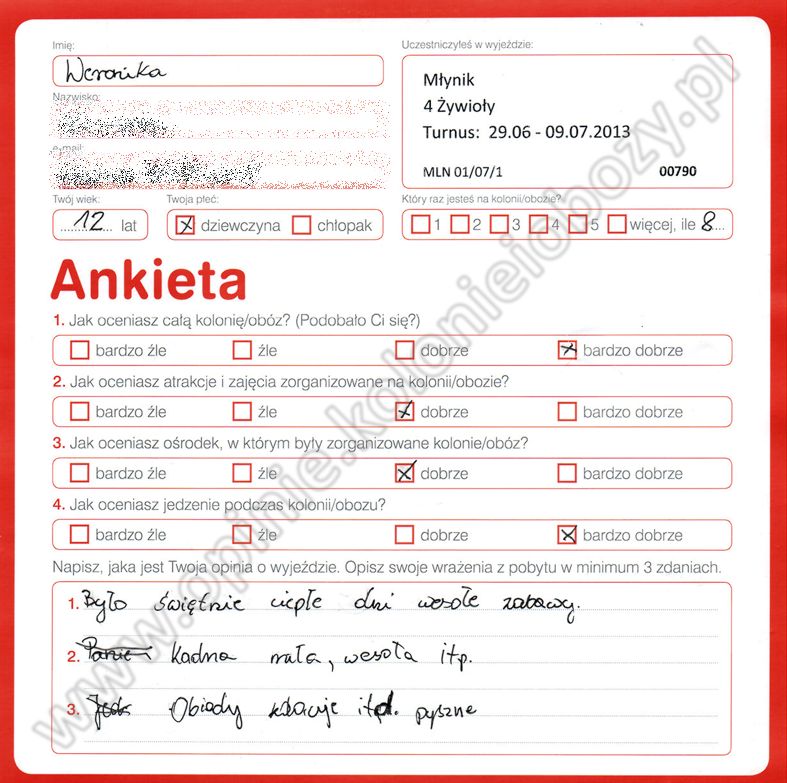 Imię:
Weronika
Uczestniczyłeś w wyjeździe:
Młynik
4 Żywioły
Turnus: 29.06 - 09.07.2013
MLN 01/07/1 00790
Nazwisko:
e-mail:
Twój wiek:
12 lat
Twoja płeć:
dziewczyna chłopak
Który raz jesteś na kolonii/obozie?
1 2 3 4 5 więcej, ile 8
Ankieta
1. Jak oceniasz całą kolonię/obóz? (Podobało Ci się?)
bardzo źle źle dobrze bardzo dobrze
2. Jak oceniasz atrakcje i zajęcia zorganizowane na kolonii/obozie?
bardzo źle źle dobrze bardzo dobrze
3. Jak oceniasz ośrodek, w którym były zorganizowane kolonie/obóz?
bardzo źle źle dobrze bardzo dobrze
4. Jak oceniasz jedzenie podczas kolonii/obozu?
bardzo źle źle dobrze bardzo dobrze
Napisz, jaka jest Twoja opinia o wyjeździe. Opisz swoje wrażenia z pobytu w minimum 3 zdaniach.
1. Było świętnie ciepłe dni wesołe zabawy.
2. Kadra miła, wesoła itp.
3. Obiady kolacje itd. pyszne
www.opinie.kolonieiobozy.pl